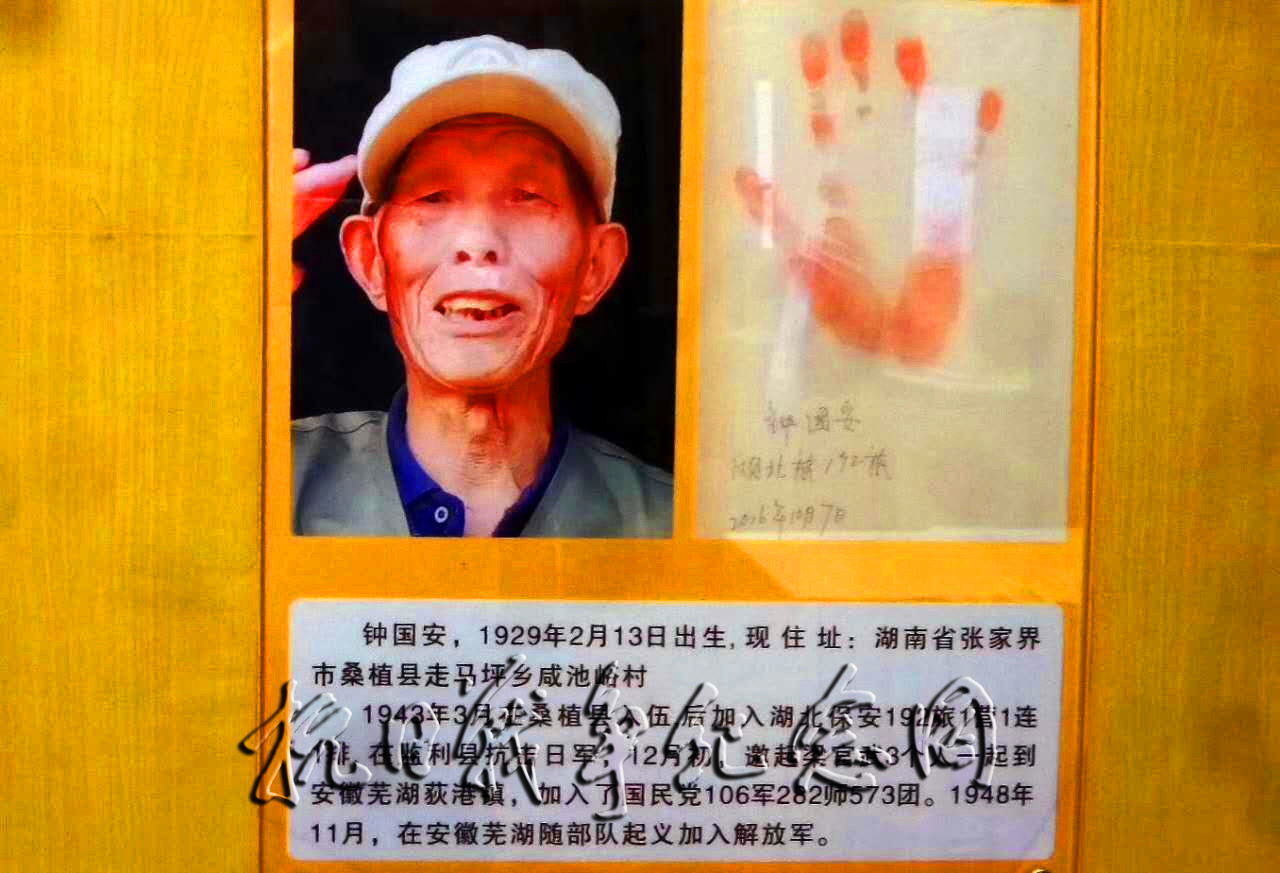 钟国安
湖北 192旅
2016年10月7日
钟国安，1929年2月13日出生,现住址：湖南省张家界
市桑植县走马坪乡咸池峪村
1943年3月在桑植县入伍,后加入湖北保安192旅1营1连
1排,在监利县抗击日军；12月初，邀起梁官武3个人一起到
安徽芜湖荻港镇，加入了国民党106军282师573团。1948年
11月，在安徽芜湖随部队起义加入解放军。
抗日战争纪念网